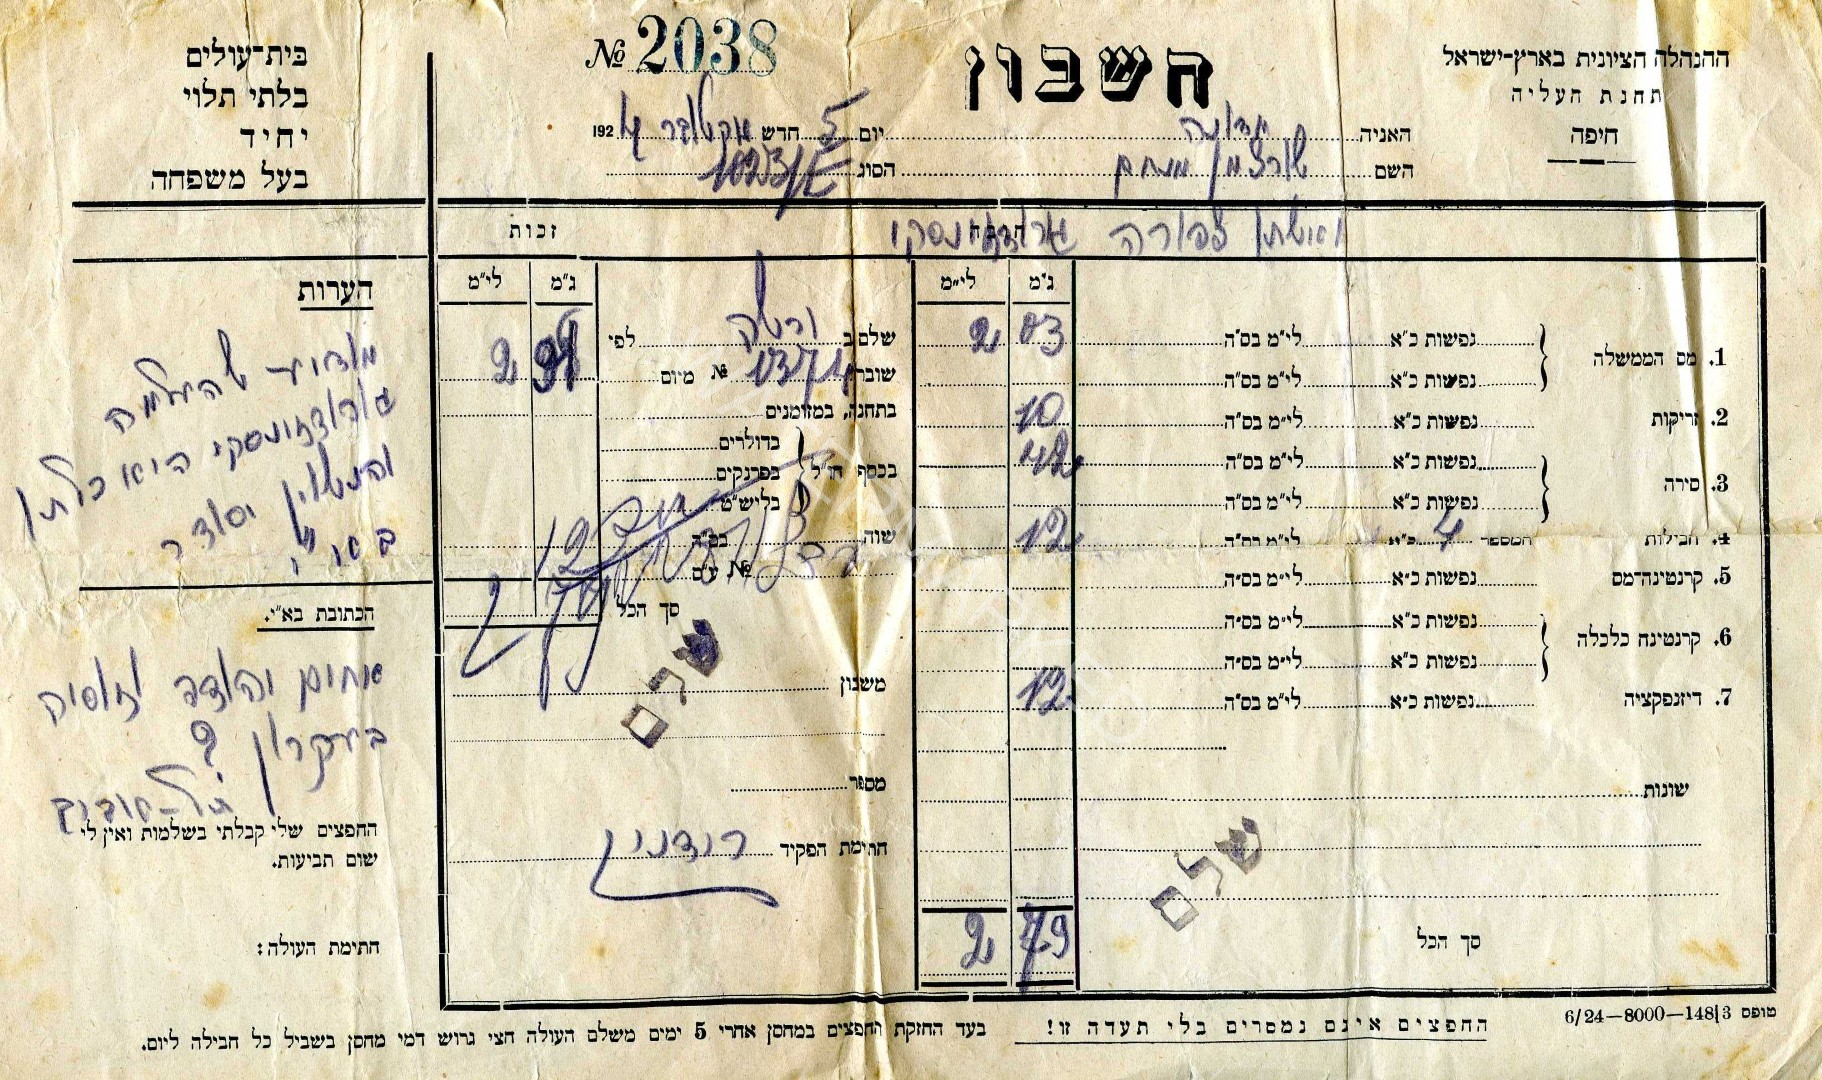 ההנהלה הציונית בארץ-ישראל
תחנת העליה
חיפה
חשבון
№ 2038
האניה
יום 5 חדש אוקטובר 1924
השם שורצמן מנחם
הסוג
בית-עולים
בלתי תלוי
יחיד
בעל משפחה
ואשתו צפורה
זכות
ג"מ
לי"מ
1. מס הממשלה
נפשות כ"א לי"מ בס"ה 03 2
נפשות כ"א לי"מ בס"ה
2. זריקות נפשות כ"א לי"מ בס"ה 10
3. סירה
נפשות כ"א לי"מ בס"ה 42
נפשות כ"א לי"מ בס"ה
4. חבילות המספר 4 כ"א לי"מ בס"ה 12
5. קרנטינה-מס נפשות כ"א לי"מ בס"ה
6. קרנטינה כלכלה
נפשות כ"א לי"מ בס"ה
נפשות כ"א לי"מ בס"ה
7. דיזנפקציה נפשות כ"א לי"מ בס"ה 12
שונות
שלם
סך הכל 79 2
ג"מ
לי"מ
שלם ב ורשה לפי
שובר № מיום
בתחנה, במזומנים
בדולרים
בכסף חו"ל בפרנקים
בליש"ט
שוה בס"ה
№ ע"ם
סך הכל
שלם
משכון
מספר
חתימת הפקיד
הערות
מודיע שהעלמה
היא כלתו
והנשואין יסודר
בא"י
הכתובת בא"י.
בעקרון ?
החפצים שלי קבלתי בשלמות ואין לי
שום תביעות.
חתימת העולה:
טופס 148/3—8000—6/24
החפצים אינם נמסרים בלי תעדה זו!
בעד החזקת החפצים במחסן אחרי 5 ימים משלם העולה חצי גרוש דמי מחסן בשביל כל חבילה ליום.